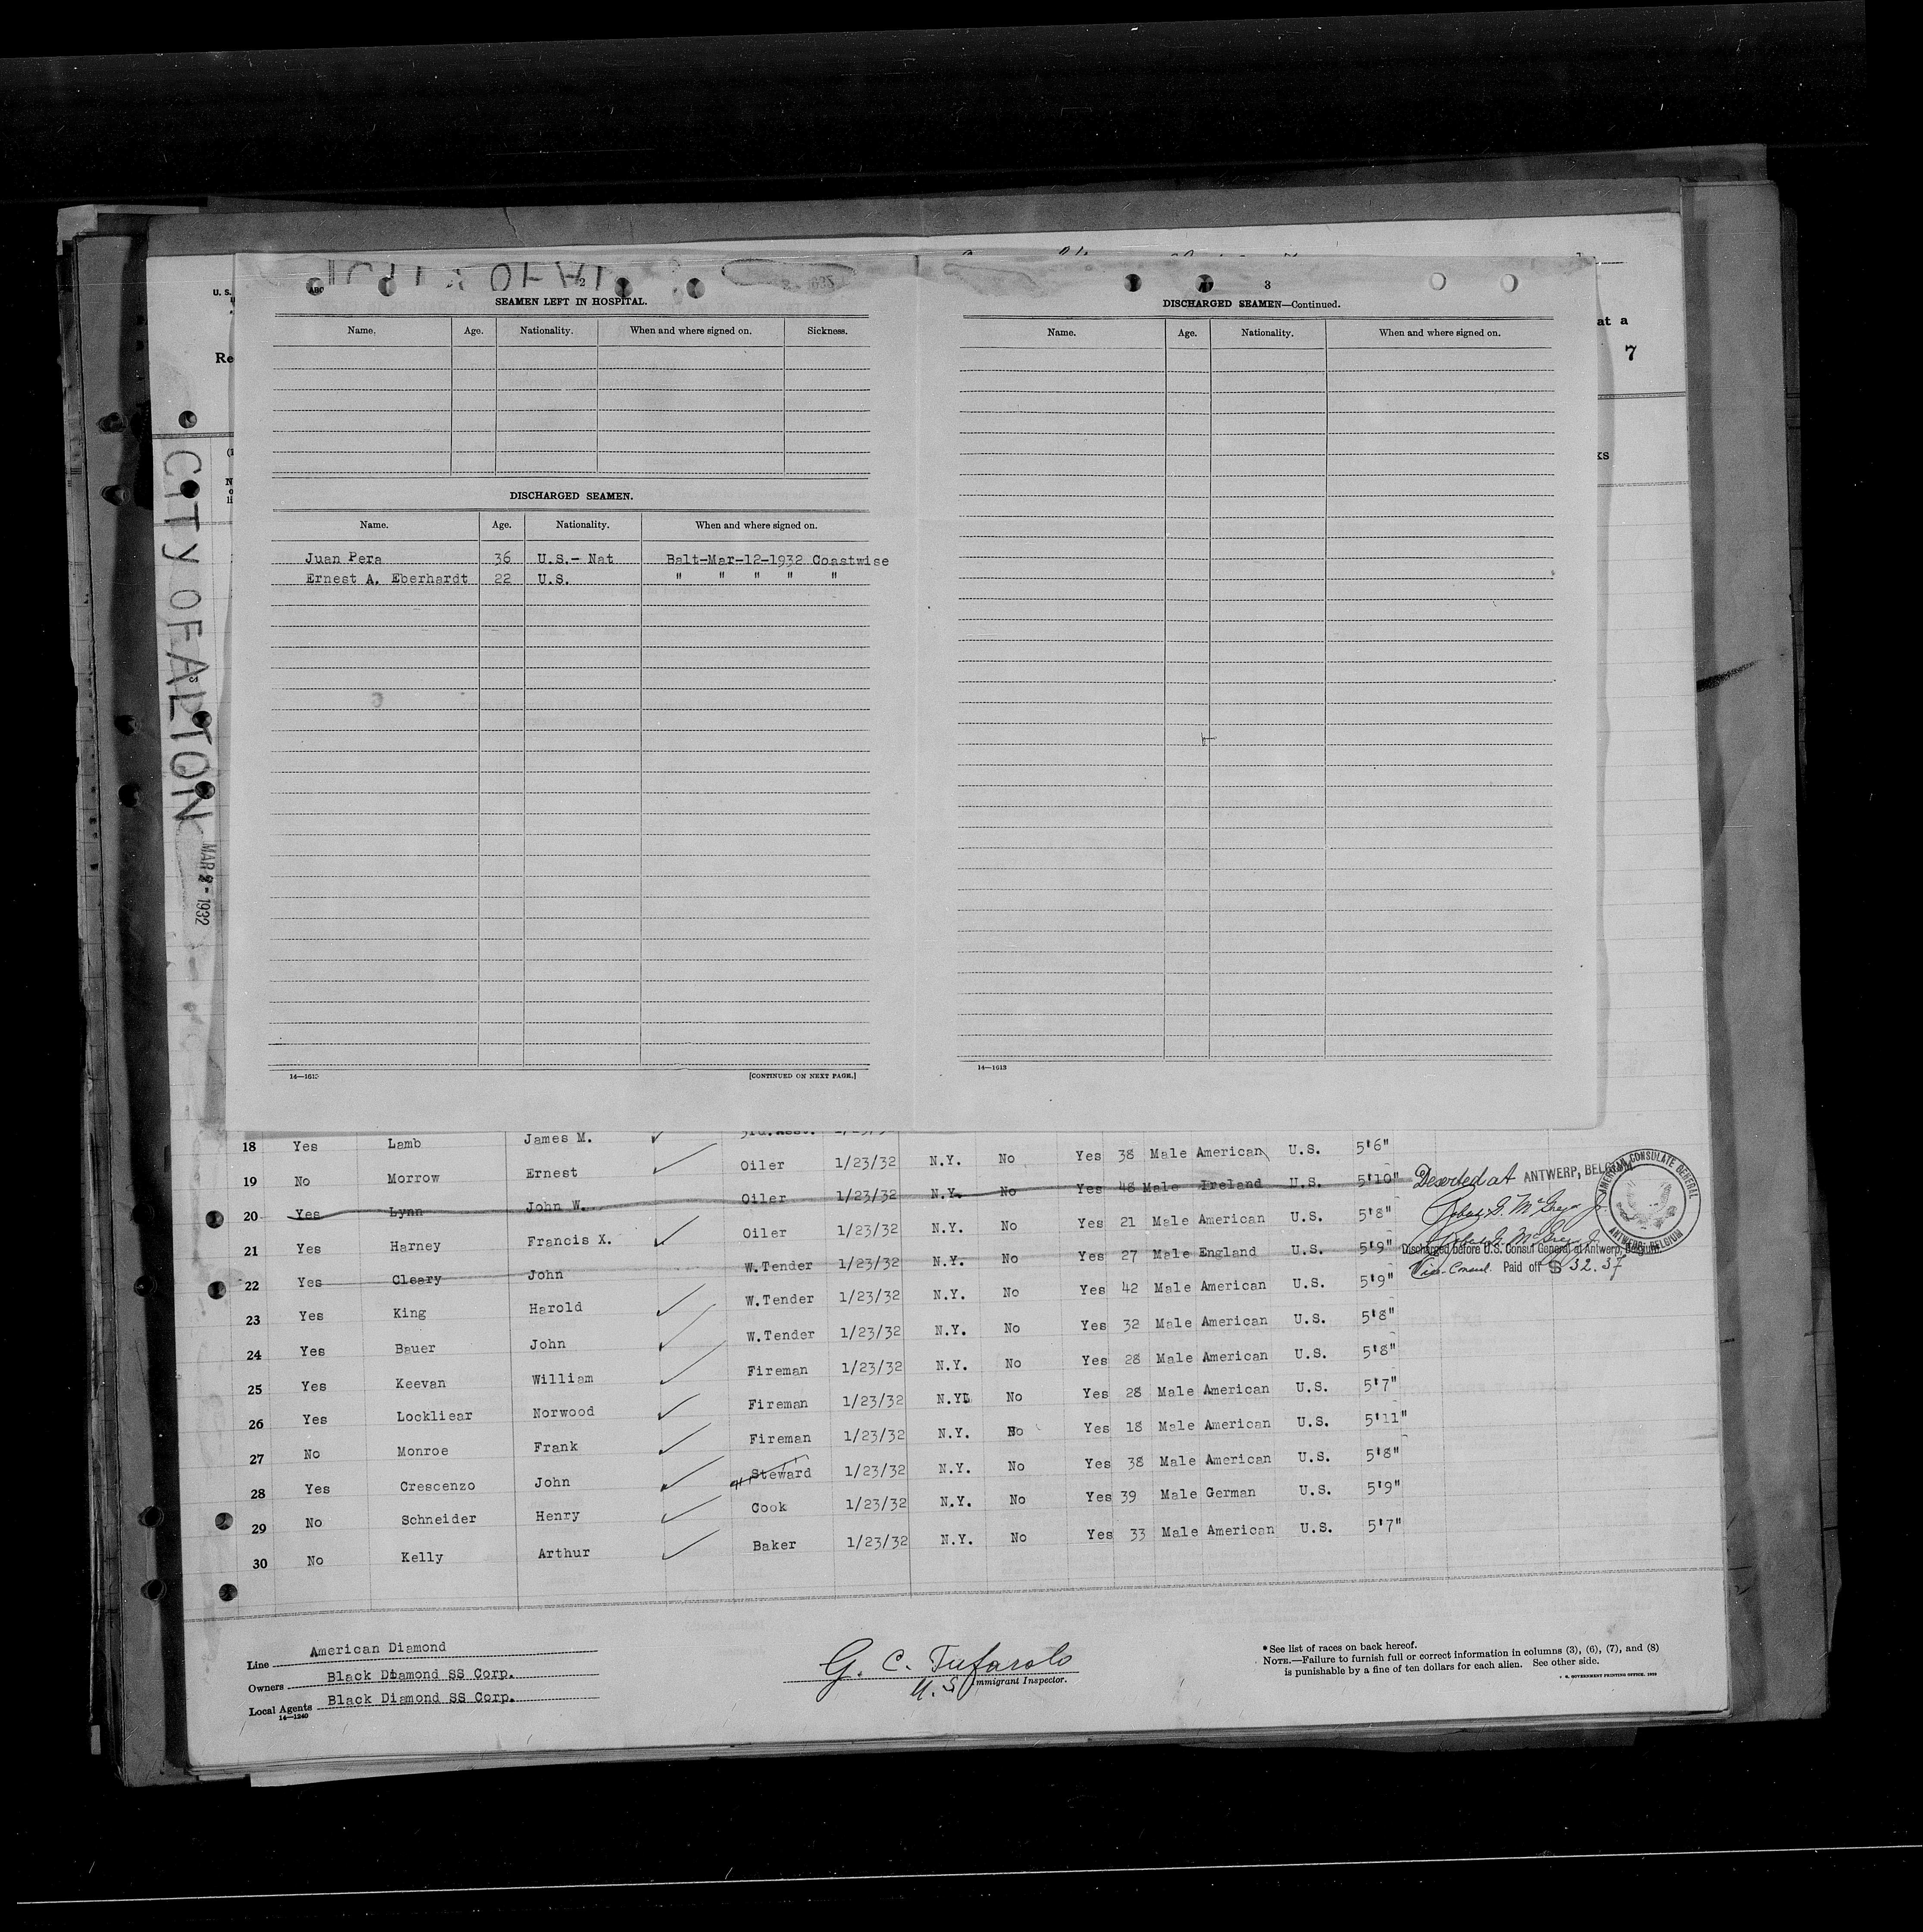 CITY OF ALTON
MAR 2 - 1932
U. S.
Re
at a
7
2
SEAMEN LEFT IN HOSPITAL.
Name. Age. Nationality. When and where signed on. Sickness.
DISCHARGED SEAMEN.
Name. Age. Nationality. When and where signed on.
Juan Pera 36 U.S.- Nat Balt-Mar-12-1932 Coastwise
Ernest A. Eberhardt 22 U.S. " " " " "
14—1613
[CONTINUED ON NEXT PAGE.]
3
DISCHARGED SEAMEN—Continued.
Name. Age. Nationality. When and where signed on.
14—1613
18 Yes Lamb James M. 3rd.Asst.
19 No Morrow Ernest Oiler 1/23/32 N.Y. No Yes 38 Male American U.S. 5'6"
20 Yes Lynn John W. Oiler 1/23/32 N.Y. No Yes 48 Male Ireland U.S. 5'10" Deserted at ANTWERP, BELGIUM
21 Yes Harney Francis X. Oiler 1/23/32 N.Y. No Yes 21 Male American U.S. 5'8"
22 Yes Cleary John W.Tender 1/23/32 N.Y. No Yes 27 Male England U.S. 5'9" Discharged before U.S. Consul General at Antwerp, Belgium
Vice-Consul. Paid off $ 32.37
AMERICAN CONSULATE GENERAL ANTWERP, BELGIUM
23 Yes King Harold W.Tender 1/23/32 N.Y. No Yes 42 Male American U.S. 5'9"
24 Yes Bauer John W.Tender 1/23/32 N.Y. No Yes 32 Male American U.S. 5'8"
25 Yes Keevan William Fireman 1/23/32 N.Y. No Yes 28 Male American U.S. 5'8"
26 Yes Lockliear Norwood Fireman 1/23/32 N.Y. No Yes 28 Male American U.S. 5'7"
27 No Monroe Frank Fireman 1/23/32 N.Y. No Yes 18 Male American U.S. 5'11"
28 Yes Crescenzo John Steward 1/23/32 N.Y. No Yes 38 Male American U.S. 5'8"
29 No Schneider Henry Cook 1/23/32 N.Y. No Yes 39 Male German U.S. 5'9"
30 No Kelly Arthur Baker 1/23/32 N.Y. No Yes 33 Male American U.S. 5'7"
Line American Diamond
Owners Black Diamond SS Corp.
Local Agents Black Diamond SS Corp.
14—1240
G. C. Tufarolo
U.S. Immigrant Inspector.
* See list of races on back hereof.
NOTE.—Failure to furnish full or correct information in columns (3), (6), (7), and (8)
is punishable by a fine of ten dollars for each alien. See other side.